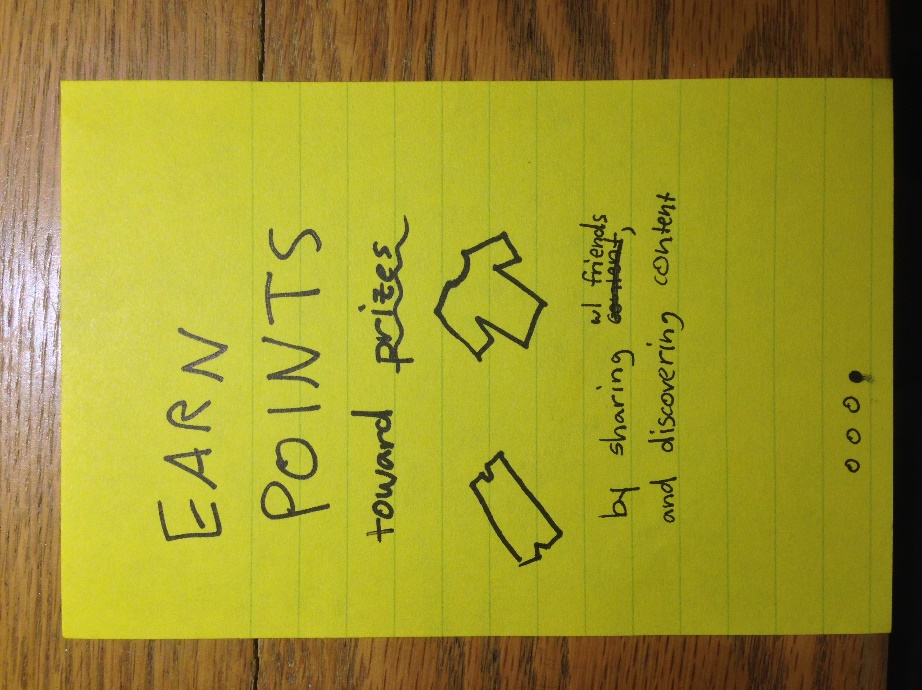 EARN
POINTS
toward prizes
by sharing w/ friends content,
and discovering content